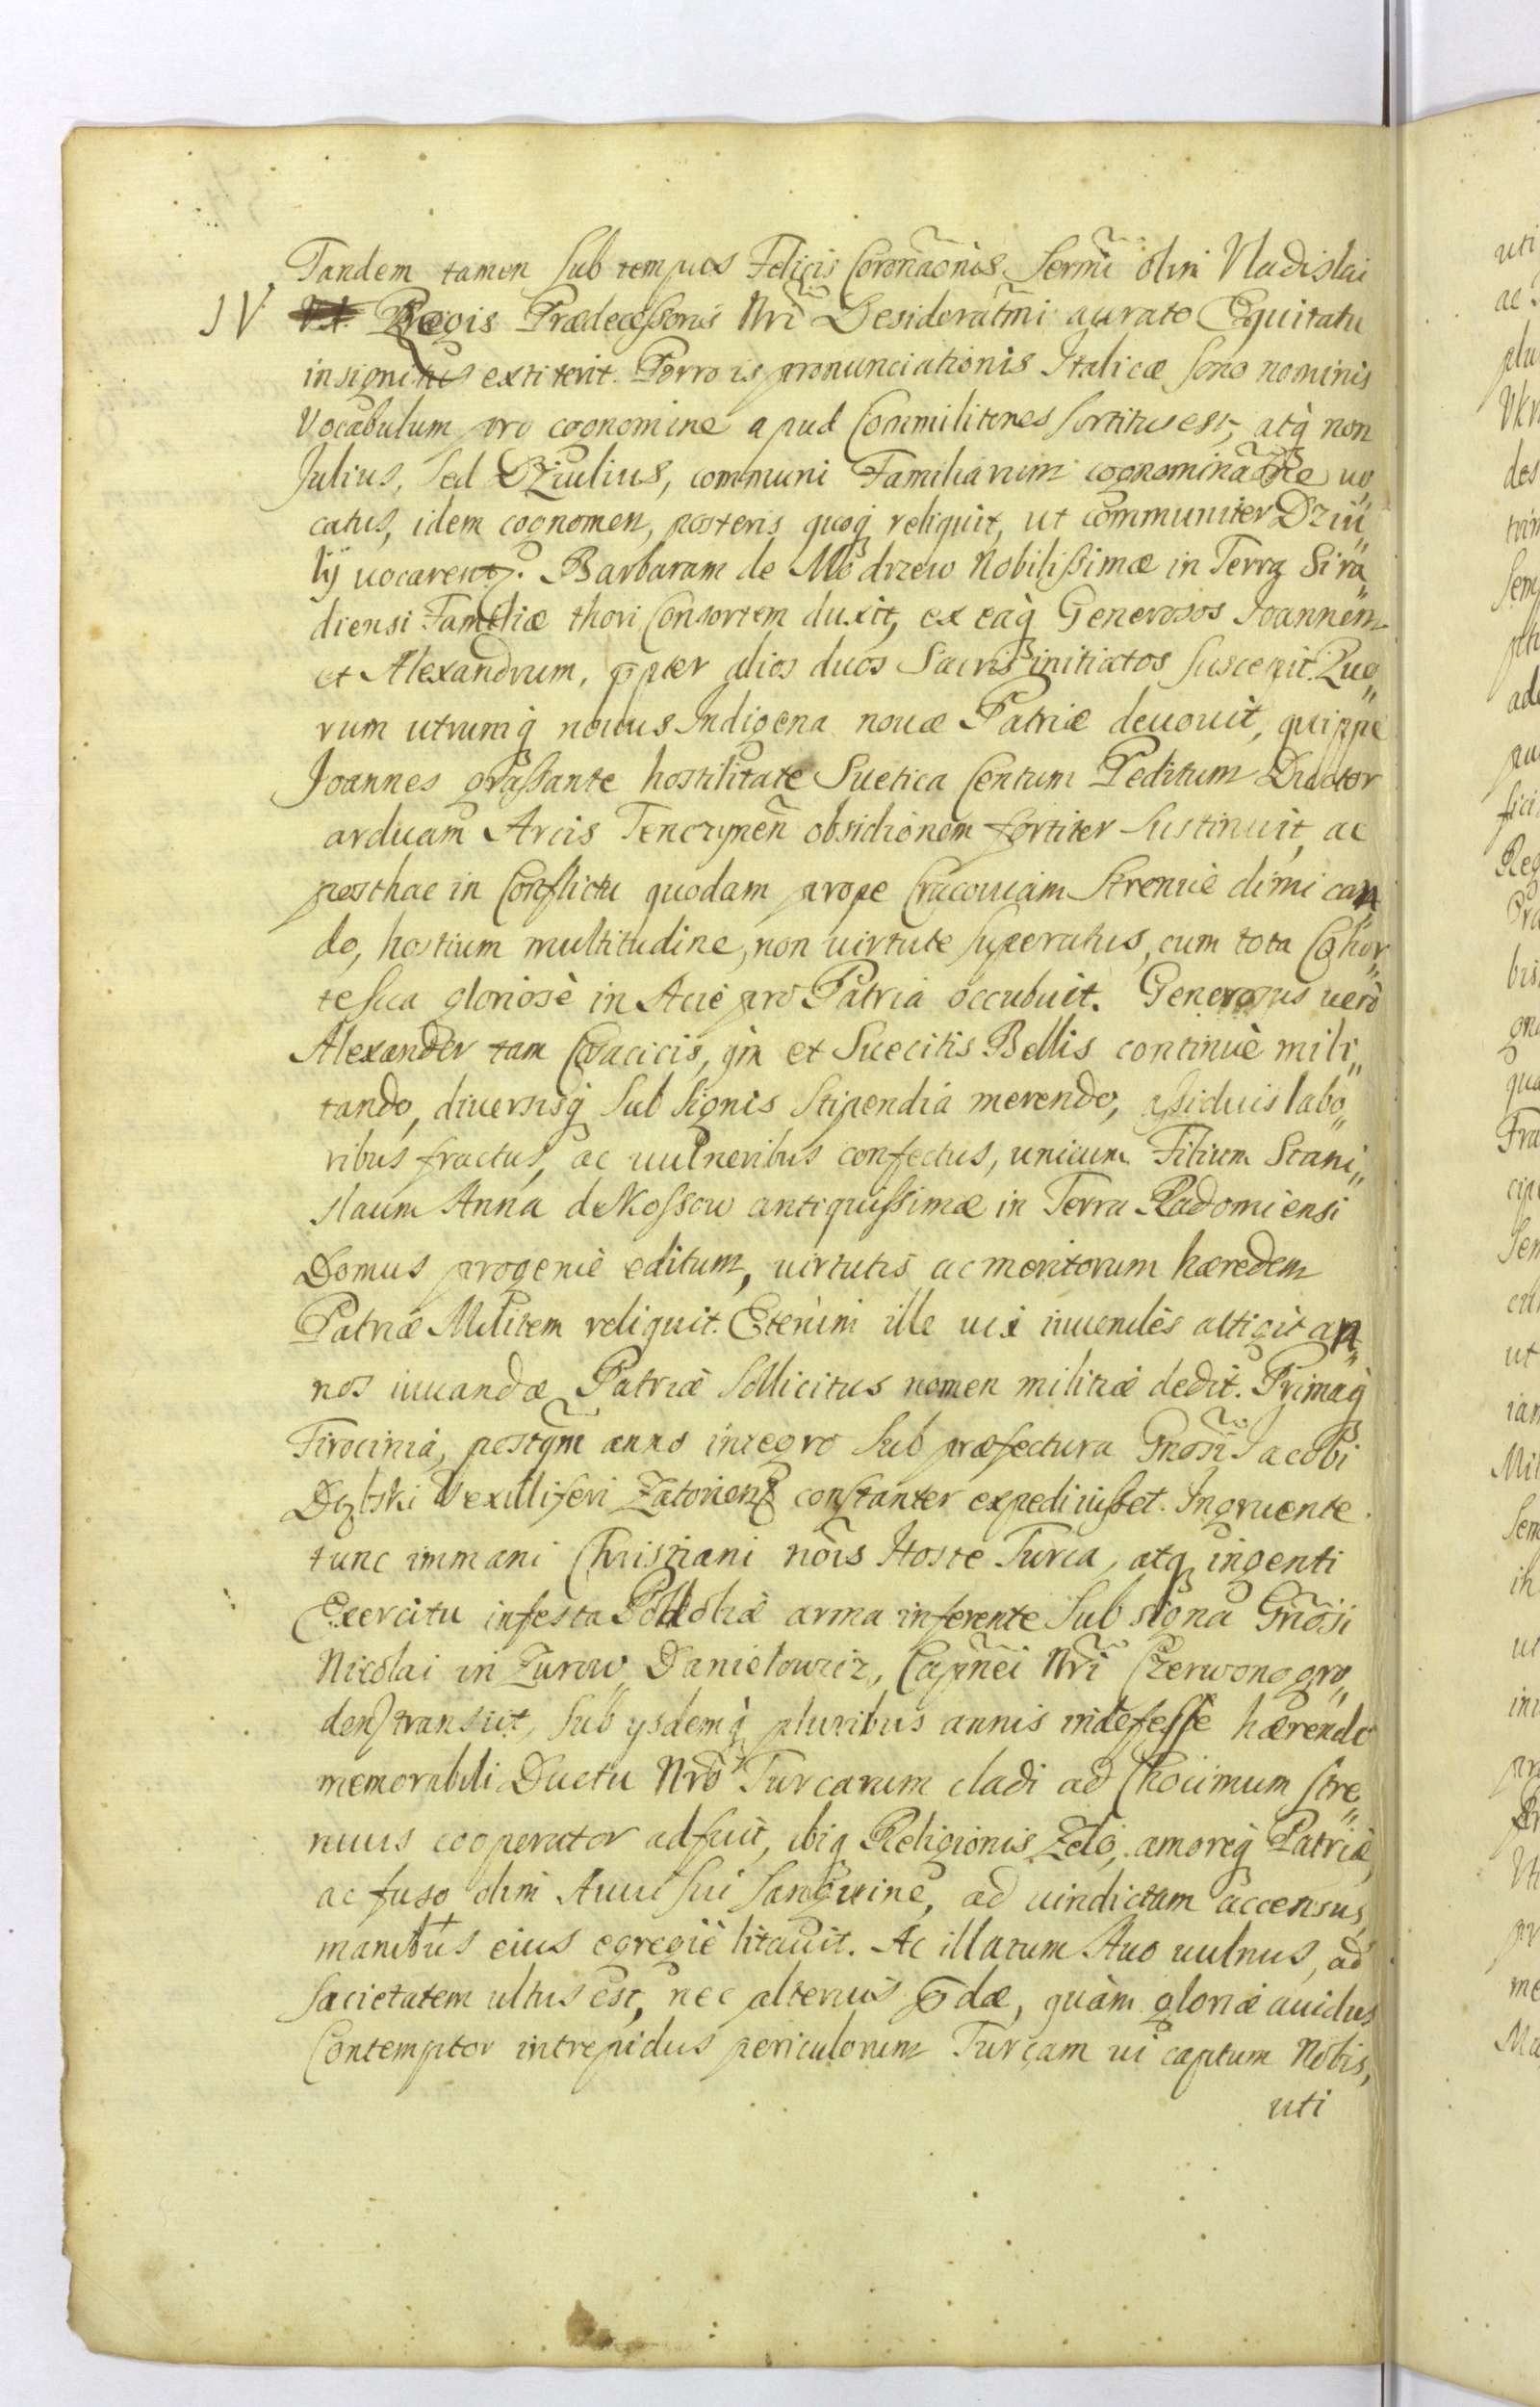 Tandem tamen sub tempus Felicis Coronãonis Sermi olim Vladislai
IV Regis Prædecessoris Nri Desideratmi aurato Equitatu
insignitus extiterit. Porro is pronunciationis Italicæ sono nominis
Vocabulum pro cognomine apud Commilitones sortitus est, atq́ non
Julius, sed Dziulius, communi Familiarium cognominãone uo„
catus, idem cognomen, posteris quoq́ reliquit, ut communiter Dziu„
lÿ uocarent. Barbaram de Modrzew Nobilissimæ in Terra Sira„
diensi Familiæ thori Consortem duxit, ex eaq́ Generosos Joannem
et Alexandrum, ppter alios duos Sacris initiatos suscepit. Quo„
rum utrumq́ nouus Indigena nouæ Patriæ deuouit, quippe
Joannes grassante hostilitate Suetica Centum Peditum Ductor
arduam Arcis Tenczynen̄ obsidionem fortiter sustinuit, ac
posthac in Conflictu quodam prope Cracouiam strenuè dimican„
do, hostium multitudine, non uirtute superatus, cum tota Cohor„
te sua gloriosè in Acie pro Patria occubuit. Generosus uerò
Alexander tam Cosacicis, qm̄ et Suecitis Bellis continuè mili„
tando, diuersisq́ sub signis stipendia merendo, assiduis labo„
ribus fractus, ac uulneribus confectus, unicum Filium Stani„
slaum Anna de Kossow antiquissimæ in Terra Radomiensi
Domus progenie editum, uirtutis ac meritorum hæredem
Patriæ Militem reliquit. Etenim ille uix iuueniles attigit an„
nos iuuandæ Patriæ sollicitus nomen militiæ dedit. Primaq́
Tirocinia, postqm̄ anno integro sub præfectura Gnosi Jacobi
Dębski Vexilliferi Zatorien̄ constanter expediuisset. Ingruente
tunc immani Christiani nōis Hoste Turca, atq́ ingenti
Exercitu infesta Podoliæ arma inferente sub signa Gnosi
Nicolai in Zurow Danielowicz, Capnei Nri Czerwonogro„
den̄ transiit, sub ysdemq́ pluribus annis indefessè hærendo
memorabili Ductu Nrō Turcarum cladi ad Chocimum stre„
nuus cooperator adfuit, ibiq́ Religionis Zelo, amoreq́ Patriæ,
ac fuso olim Aui sui sanguine, ad uindictam accensus,
manibus eius egregiè litauit. Ac illatum Auo uulnus, ad
sacietatem ultus est, nec alterius pdæ, quàm gloriæ auidus
Contemptor intrepidus periculorum Turcam ui captum Nobis,
uti